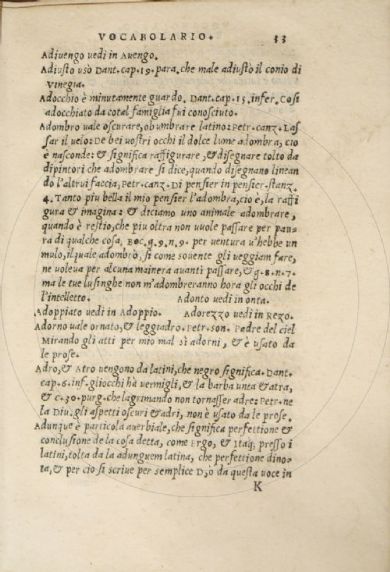 VOCABOLARIO. 33
Adiuengo uedi in Auengo.
Adiusto usò Dant. cap. 19. para. che male adiusto il conio di
Vinegia.
Adocchio è minutamente guardo. Dant. cap. 15. infer. Cosi
adocchiato da cotal famiglia fui conosciuto.
Adombro uale oscurare, obumbrare latino: Petr. canz. Las
sar il uelo: De bei uostri occhi il dolce lume adombra, cio
è nasconde: & significa raffigurare, & disegnare tolto da
dipintori che adombrare si dice, quando disegnano linean
do l'altrui faccia, Petr. canz. Di pensier in pensier. stanz.
4. Tanto piu bella il mio pensier l'adombra, cio è, la raffi
gura & imagina: & diciamo uno animale adombrare,
quando è restio, che piu oltra non uuole passare per pau=
ra di qualche cosa, BOC. g. 9. n. 9. per uentura u'hebbe un
mulo, il quale adombrò, si come souente gli ueggiam fare,
ne uoleua per alcuna mainera auanti passare, & g. 8. n. 7.
ma le tue lusinghe non m'adombreranno hora gli occhi de
l'intelletto. Adonto uedi in onta.
Adoppiato uedi in Adoppio. Adorezzo uedi in Rezo.
Adorno uale ornato, & leggiadro. Petr. son. Padre del ciel
Mirando gli atti per mio mal sì adorni, & è usato da
le prose.
Adro, & Atro uengono da latini, che negro significa. Dant.
cap. 6. inf. gliocchi hà vermigli, & la barba unea & atra,
& c. 30. purg. che lagrimando non tornasser adre: Petr. ne
la Diu. gli aspetti oscuri & adri, non è usato da le prose.
Adunque è particola auerbiale, che significa perfettione &
conclusione de la cosa detta, come Ergo, & Itaq; presso i
latini, tolta da la adunguem latina, che perfettione dino=
ta, & per cio si scriue per semplice D, ò da questa uoce in
K